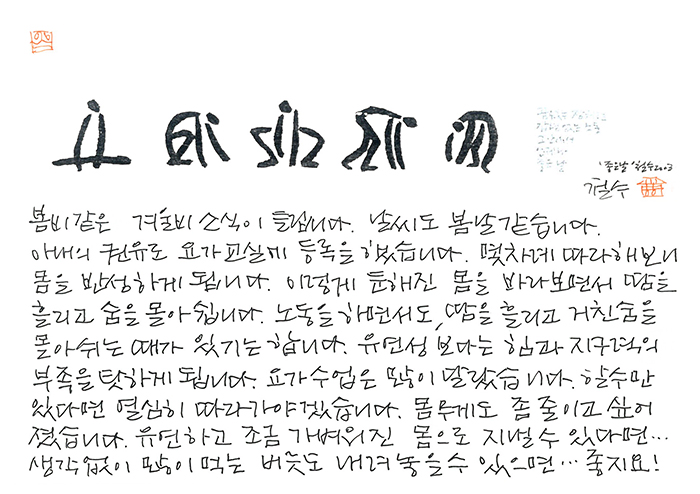 '좋은날' 철수2003
철수
봄비같은 겨울비 소식이 들립니다. 날씨도 봄날같습니다.
아내의 권유로 요가교실에 등록을 했습니다. 몇차례 따라해보니
몸을 반성하게 됩니다. 이렇게 둔해진 몸을 바라보면서 땀을
흘리고 숨을 몰아쉽니다. 노동을 하면서도, 땀을 흘리고 거친숨을
몰아쉬는 때가 있기는 합니다. 유연성 보다는 힘과 지구력의
부족을 탓하게 됩니다. 요가수업은 많이 달랐습니다. 할수만
있다면 열심히 따라가야겠습니다. 몸무게도 좀 줄이고 싶어
졌습니다. 유연하고 조금 가벼워진 몸으로 지낼수 있다면…
생각없이 많이 먹는 버릇도 내려놓을수 있으면… 좋지요!